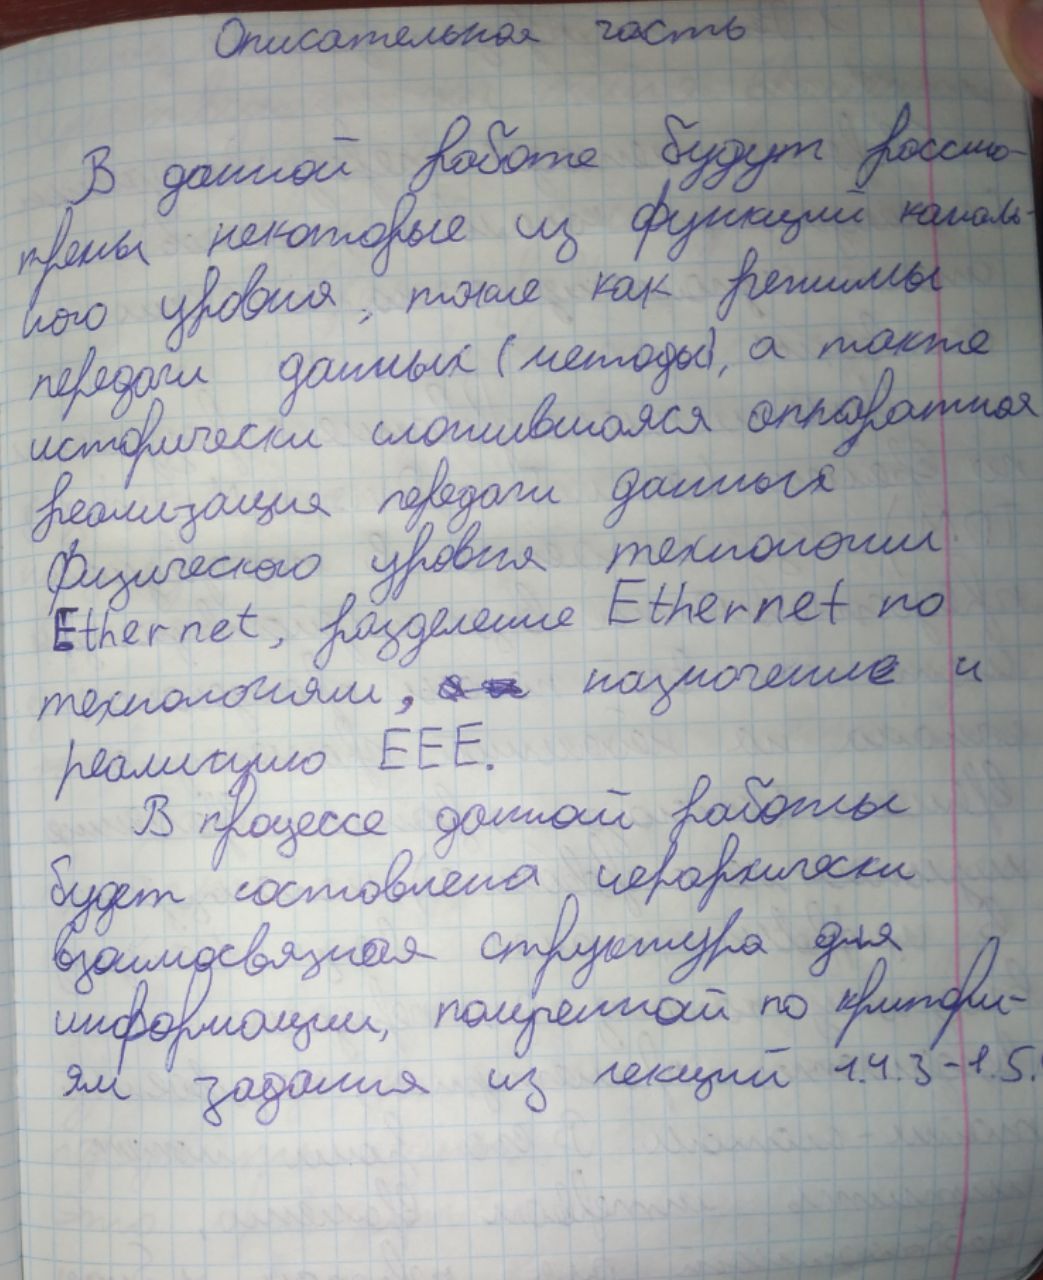 Описательная часть
В данной работе будут рассмо-
трены некоторые из функций каналь-
ного уровня, такие как режимы
передачи данных (методы), а также
исторически сложившаяся аппаратная
реализация передачи данных
физического уровня технологии
Ethernet, разделение Ethernet по
технологиям, назначение и
реализацию EEE.
В процессе данной работы
будет составлена иерархически
взаимосвязная структура для
информации, полученной по критери-
ям задания из лекций 1.4.3-1.5.